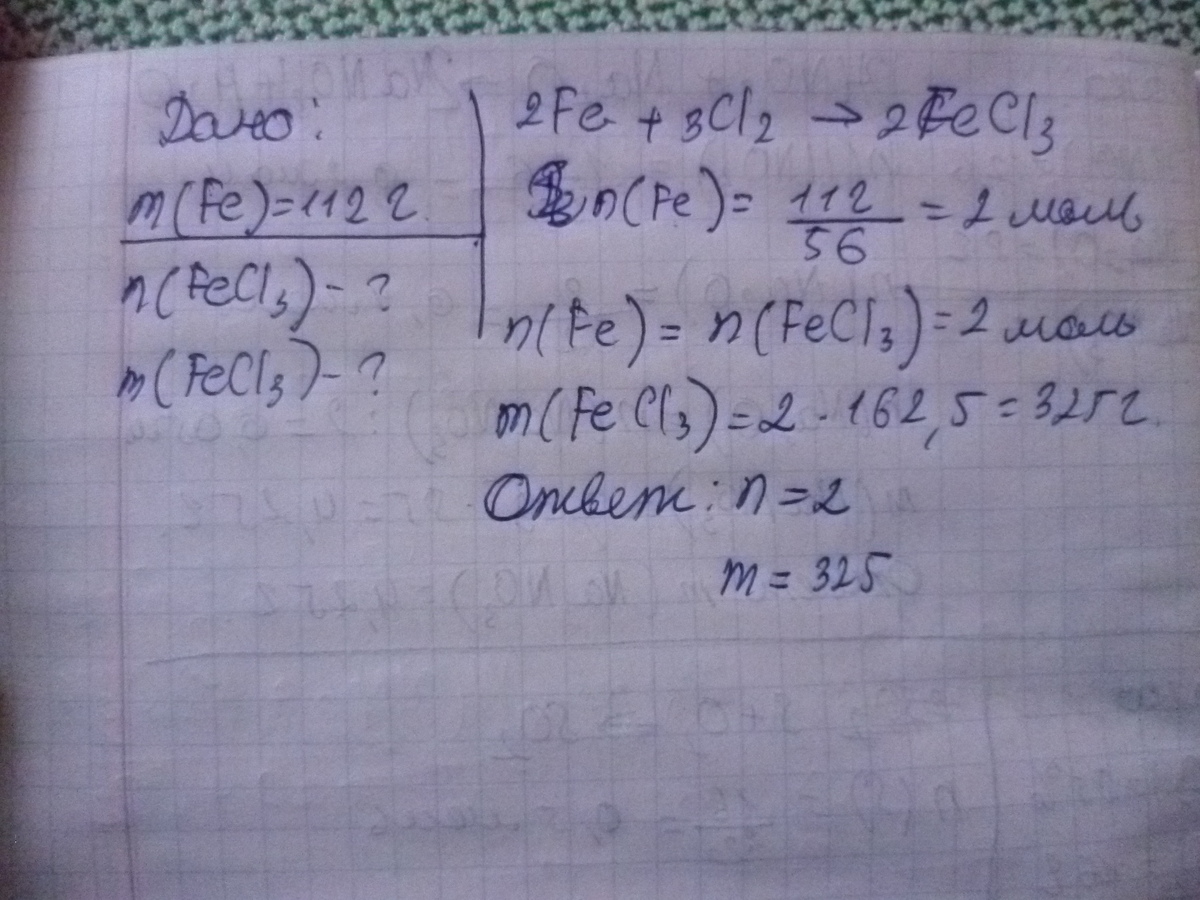 Дано:
m(Fe)=112 г.
n(FeCl3)-?
m(FeCl3)-?
2Fe + 3Cl2 → 2FeCl3
n(Fe)= 112/56 = 2 моль
n(Fe)= n(FeCl3)=2 моль
m(FeCl3)=2 · 162,5=325г.
Ответ: n=2
m=325